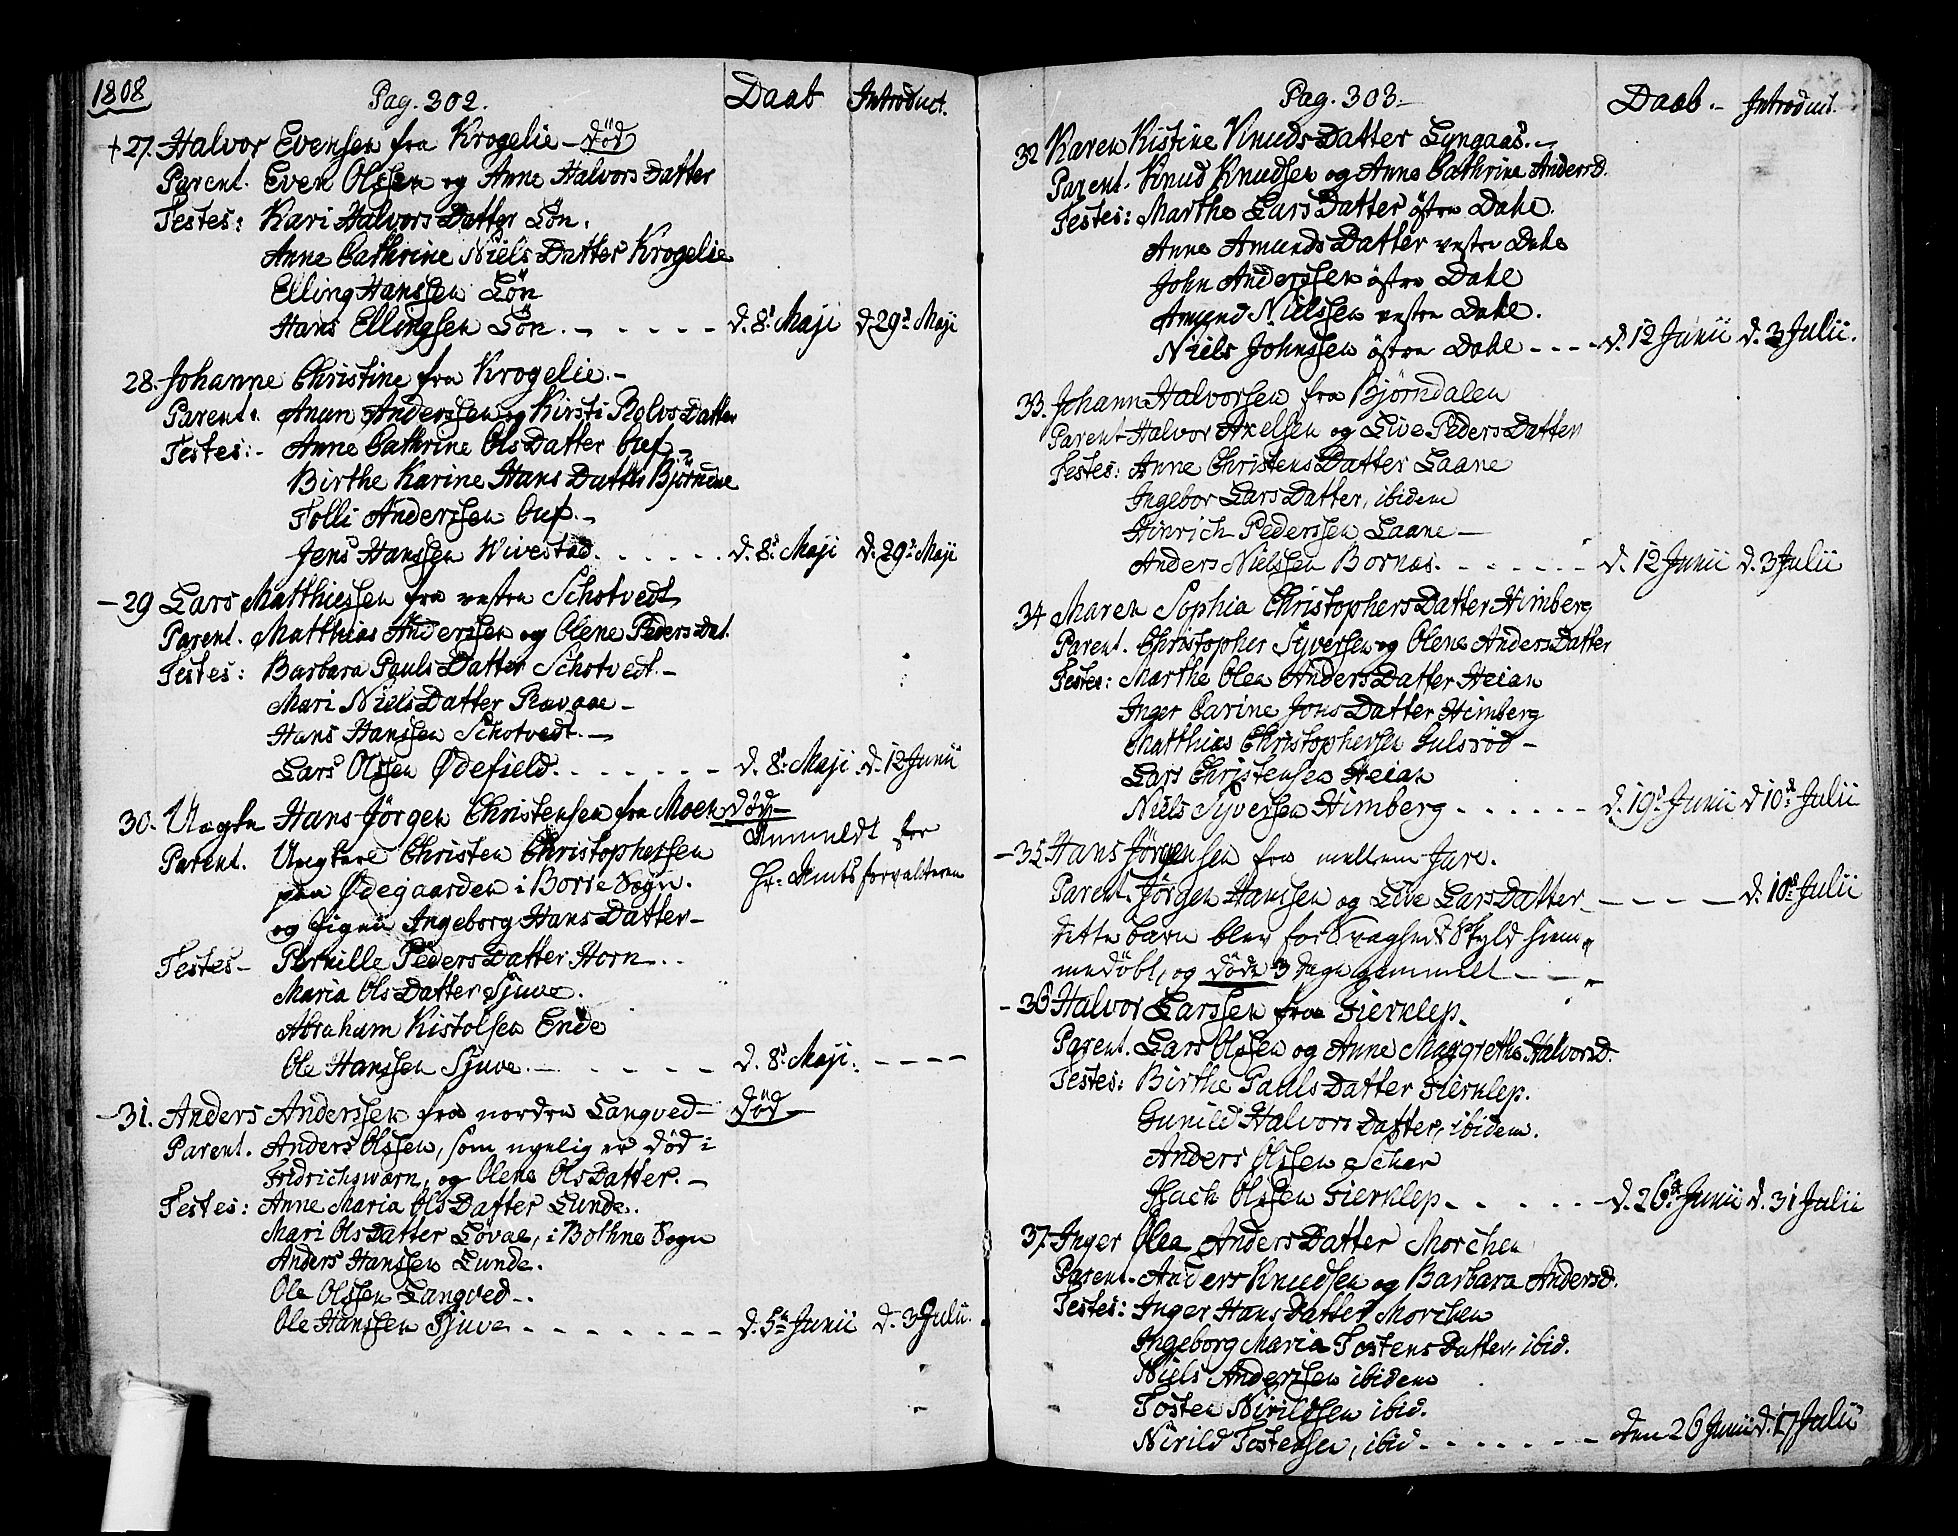 1808
Pag. 302. Daab Introduct.
+ 27. Halvor Evensen fra Krogelie – død
Parent. Even Olssen og Anne HalvorsDatter
Testes: Kari HalvorsDatter Lön.
Anne Cathrine NielsDatter Krogelie
Elling Hanssen Lön
Hans Ellingsen Lön. – – – – – d. 8d. Maji d. 29d. Maji
28. Johanne Christine fra Krogelie. –
Parent. Anun Anderssen og Kirsti RolvsDatter
Testes: – Anne Cathrine OlsDatter
Birthe Karine HansDatter Björndne
Tolli Anderssen
Jens Hanssen Wivestad. . . . . . d. 8d. Maji d. 29d. Maji
– 29 Lars Matthiessen fra vestre Schotvedt
Parent. Matthias Anderssen og Olene PedersDat.
Testes: Barbara PaulsDatter Schotvedt. –
Mari NielsDatter Ravaae –
Hans Hanssen Schotvedt. –
Lars Olssen Ødefield. . . . . . . d. 8d. Maji. d. 12 Junii
30. Uægte Hans Jörgen Christensen fra Moen død –
Parent. Ungkarl Christen Christophersen Anmeldt for
paa Ødegaarden i Borre Sogn. Hr: Amtsforvalteren
og Pigen Ingeborg HansDatter –
Testes – Pernille PedersDatter Horn . .
Maria OlsDatter Sjuve.
Abraham Kistolsen Ende
Ole Hanssen Sjuve. – – – – – d. 8d. Maji. – – – –
– 31. Anders Anderssen fra nordre Langved – Död –
Parent. Anders Olssen, som nyelig er död i
Fridrichswærn, og Olene OlsDatter. –
Testes: Anne Maria OlsDatter Lunde.
Mari OlsDatter Lövae, i Bothne Sogn
Anders Hanssen Lunde.
Ole Olssen Langved –.
Ole Hanssen Sjuve – – – – – – – d. 5te Junii d. 3 Julii.
Pag. 303. – Daab. – Introduct.
32 Karen Kistine KnudsDatter Lyngaas. –
Parent. Knud Knudsen og Anne Cathrine Andersd.
Testes: Marthe LarsDatter östre Dahl.
Anne AmundsDatter vestre Dahl
John Anderssen östre Dahl
Amund Nielssen vestre Dahl.
Niels Johnssen östre Dahl – – – – d. 12 Junii d. 3 Julii.
33. Johann Halvorsen fra Björndalen
Parent Halvor Axelsen og Live PedersDatter
Testes: Anne ChristensDatter Laane
Ingebor LarsDatter, ibidem
Hinrich Pederssen Laane –
Anders Nielssen Bornæs. – – – – – d. 12 Junii d. 3 Julii
34 Maren Sophia ChristophersDatter Himberg
Parent. Christopher Syversen og Olene AndersDatter
Testes: Marthe Olea AndersDatter Heian
Inger Carine JonsDatter Himberg
Matthias Christophersen Gulsröd –
Lars Christensen Heian
Niels Syversen Himberg . . . . . . d. 19d. Junii d 10d. Julii
– 35 Hans Jörgensen fra mellem Jare.
Parent. Jörgen Hanssen og Live LarsDatter – – – – d. 10d. Julii
dette barn blev for Svaghed Skyld hiem„
medöbt, og döde 3 Dage gammelt – – „
– 36 Halvor Larssen fra Fierklep.
Parent. Lars Olssen og Anne Margrethe Halvorsd.
Testes: Birthe PaulsDatter Fierklep.
Gunild HalvorsDatter, ibidem.
Anders Olssen Scher
Isach Olssen Fierklep. . . . . . d. 26d. Junii d. 31 Julii
37. Inger Olea AndersDatter Morchen
Parent. Anders Knudsen og Barbara Andersd.
Testes: Inger HansDatter Morchen
Ingeborg Maria TostensDatter, ibid.
Niels Anderssen ibidem
Tosten Nirildsen ibid.
Nirild Tostensen, ibid. – – – – – – den 26 Junii d. 17 Julii